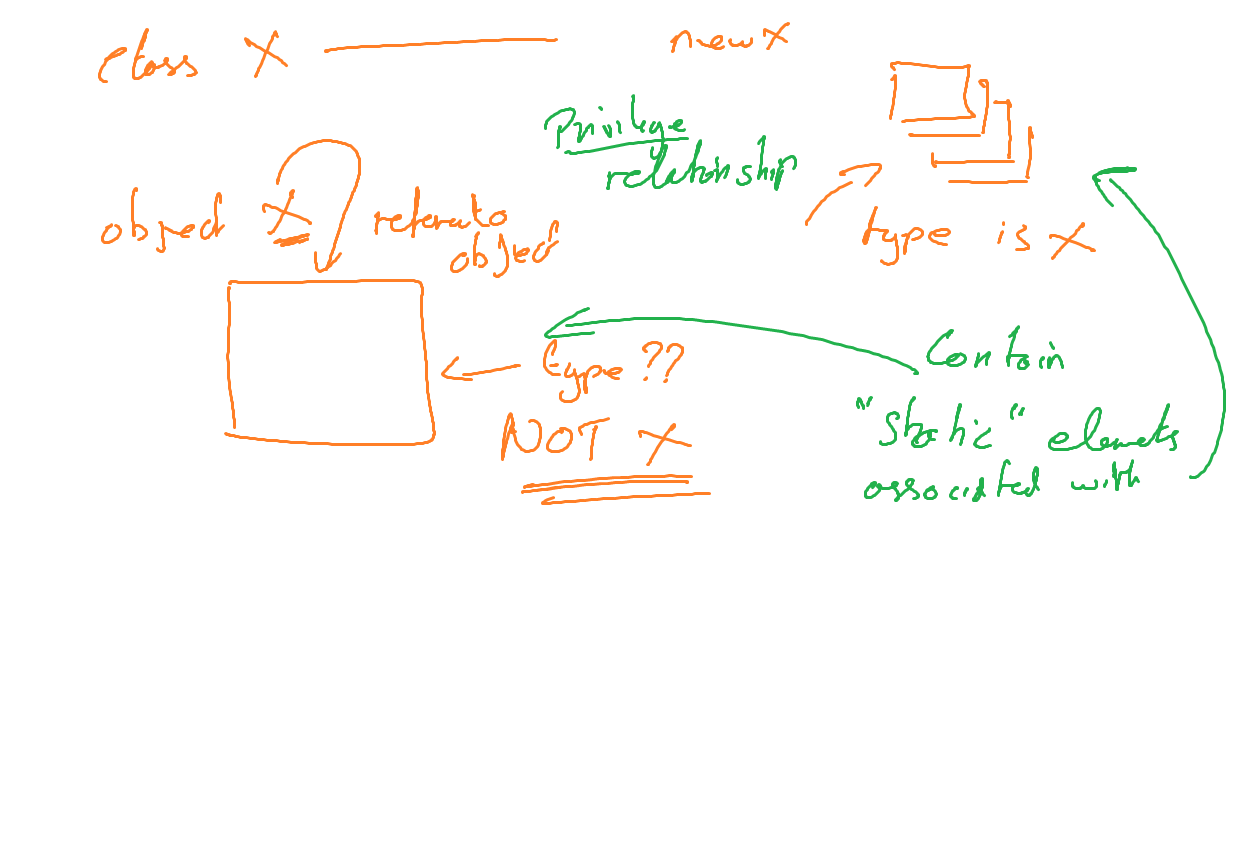 class X
new X
Privilege
relationship
object X
refers to
object
type is X
type ??
NOT X
Contain
"static" elements
associated with